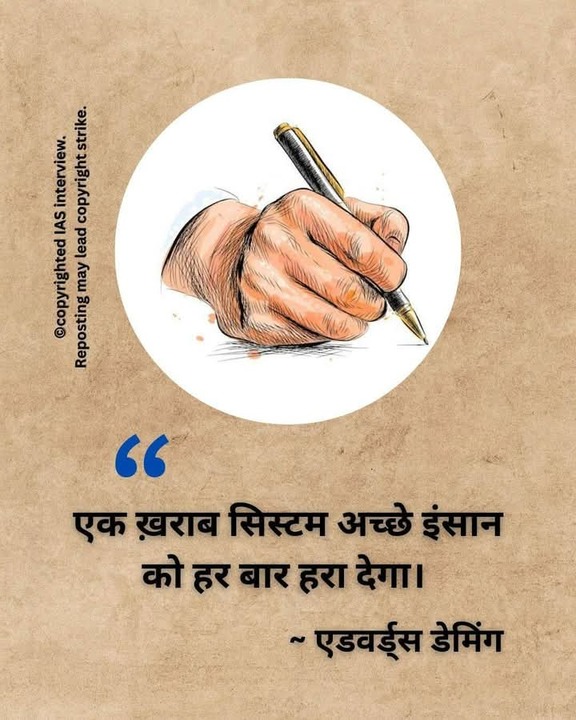 ©copyrighted IAS interview.
Reposting may lead copyright strike.
“
एक ख़राब सिस्टम अच्छे इंसान
को हर बार हरा देगा।
~ एडवर्ड्स डेमिंग